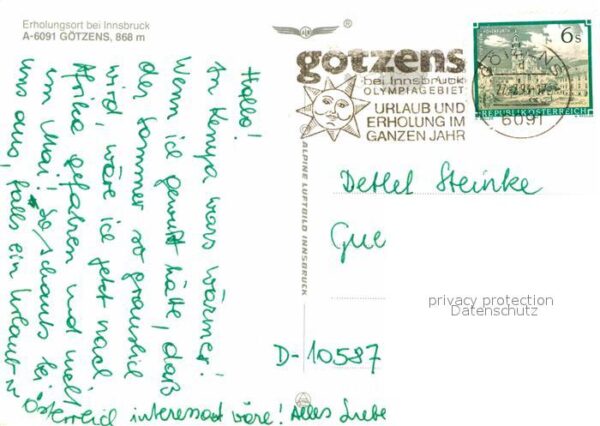 Erholungsort bei Innsbruck
A-6091 GÖTZENS, 868 m
Hallo!
In Kenya wars wärmer!
Wenn ich gewußt hätte, daß
der Sommer so grauslich
wird, wäre ich jetzt nach
Afrika gefahren und nicht
im Mai! So schauts bei
uns aus, falls ein Urlaub in
Österreich interessant wäre! Alles Liebe
ALPINE LUFTBILD INNSBRUCK
®
götzens
bei Innsbruck
OLYMPIAGEBIET
URLAUB UND
ERHOLUNG IM
GANZEN JAHR
6 S
REPUBLIK ÖSTERREICH
GÖTZENS
6091
Detlef Steinke
Gue
privacy protection
Datenschutz
D-10587